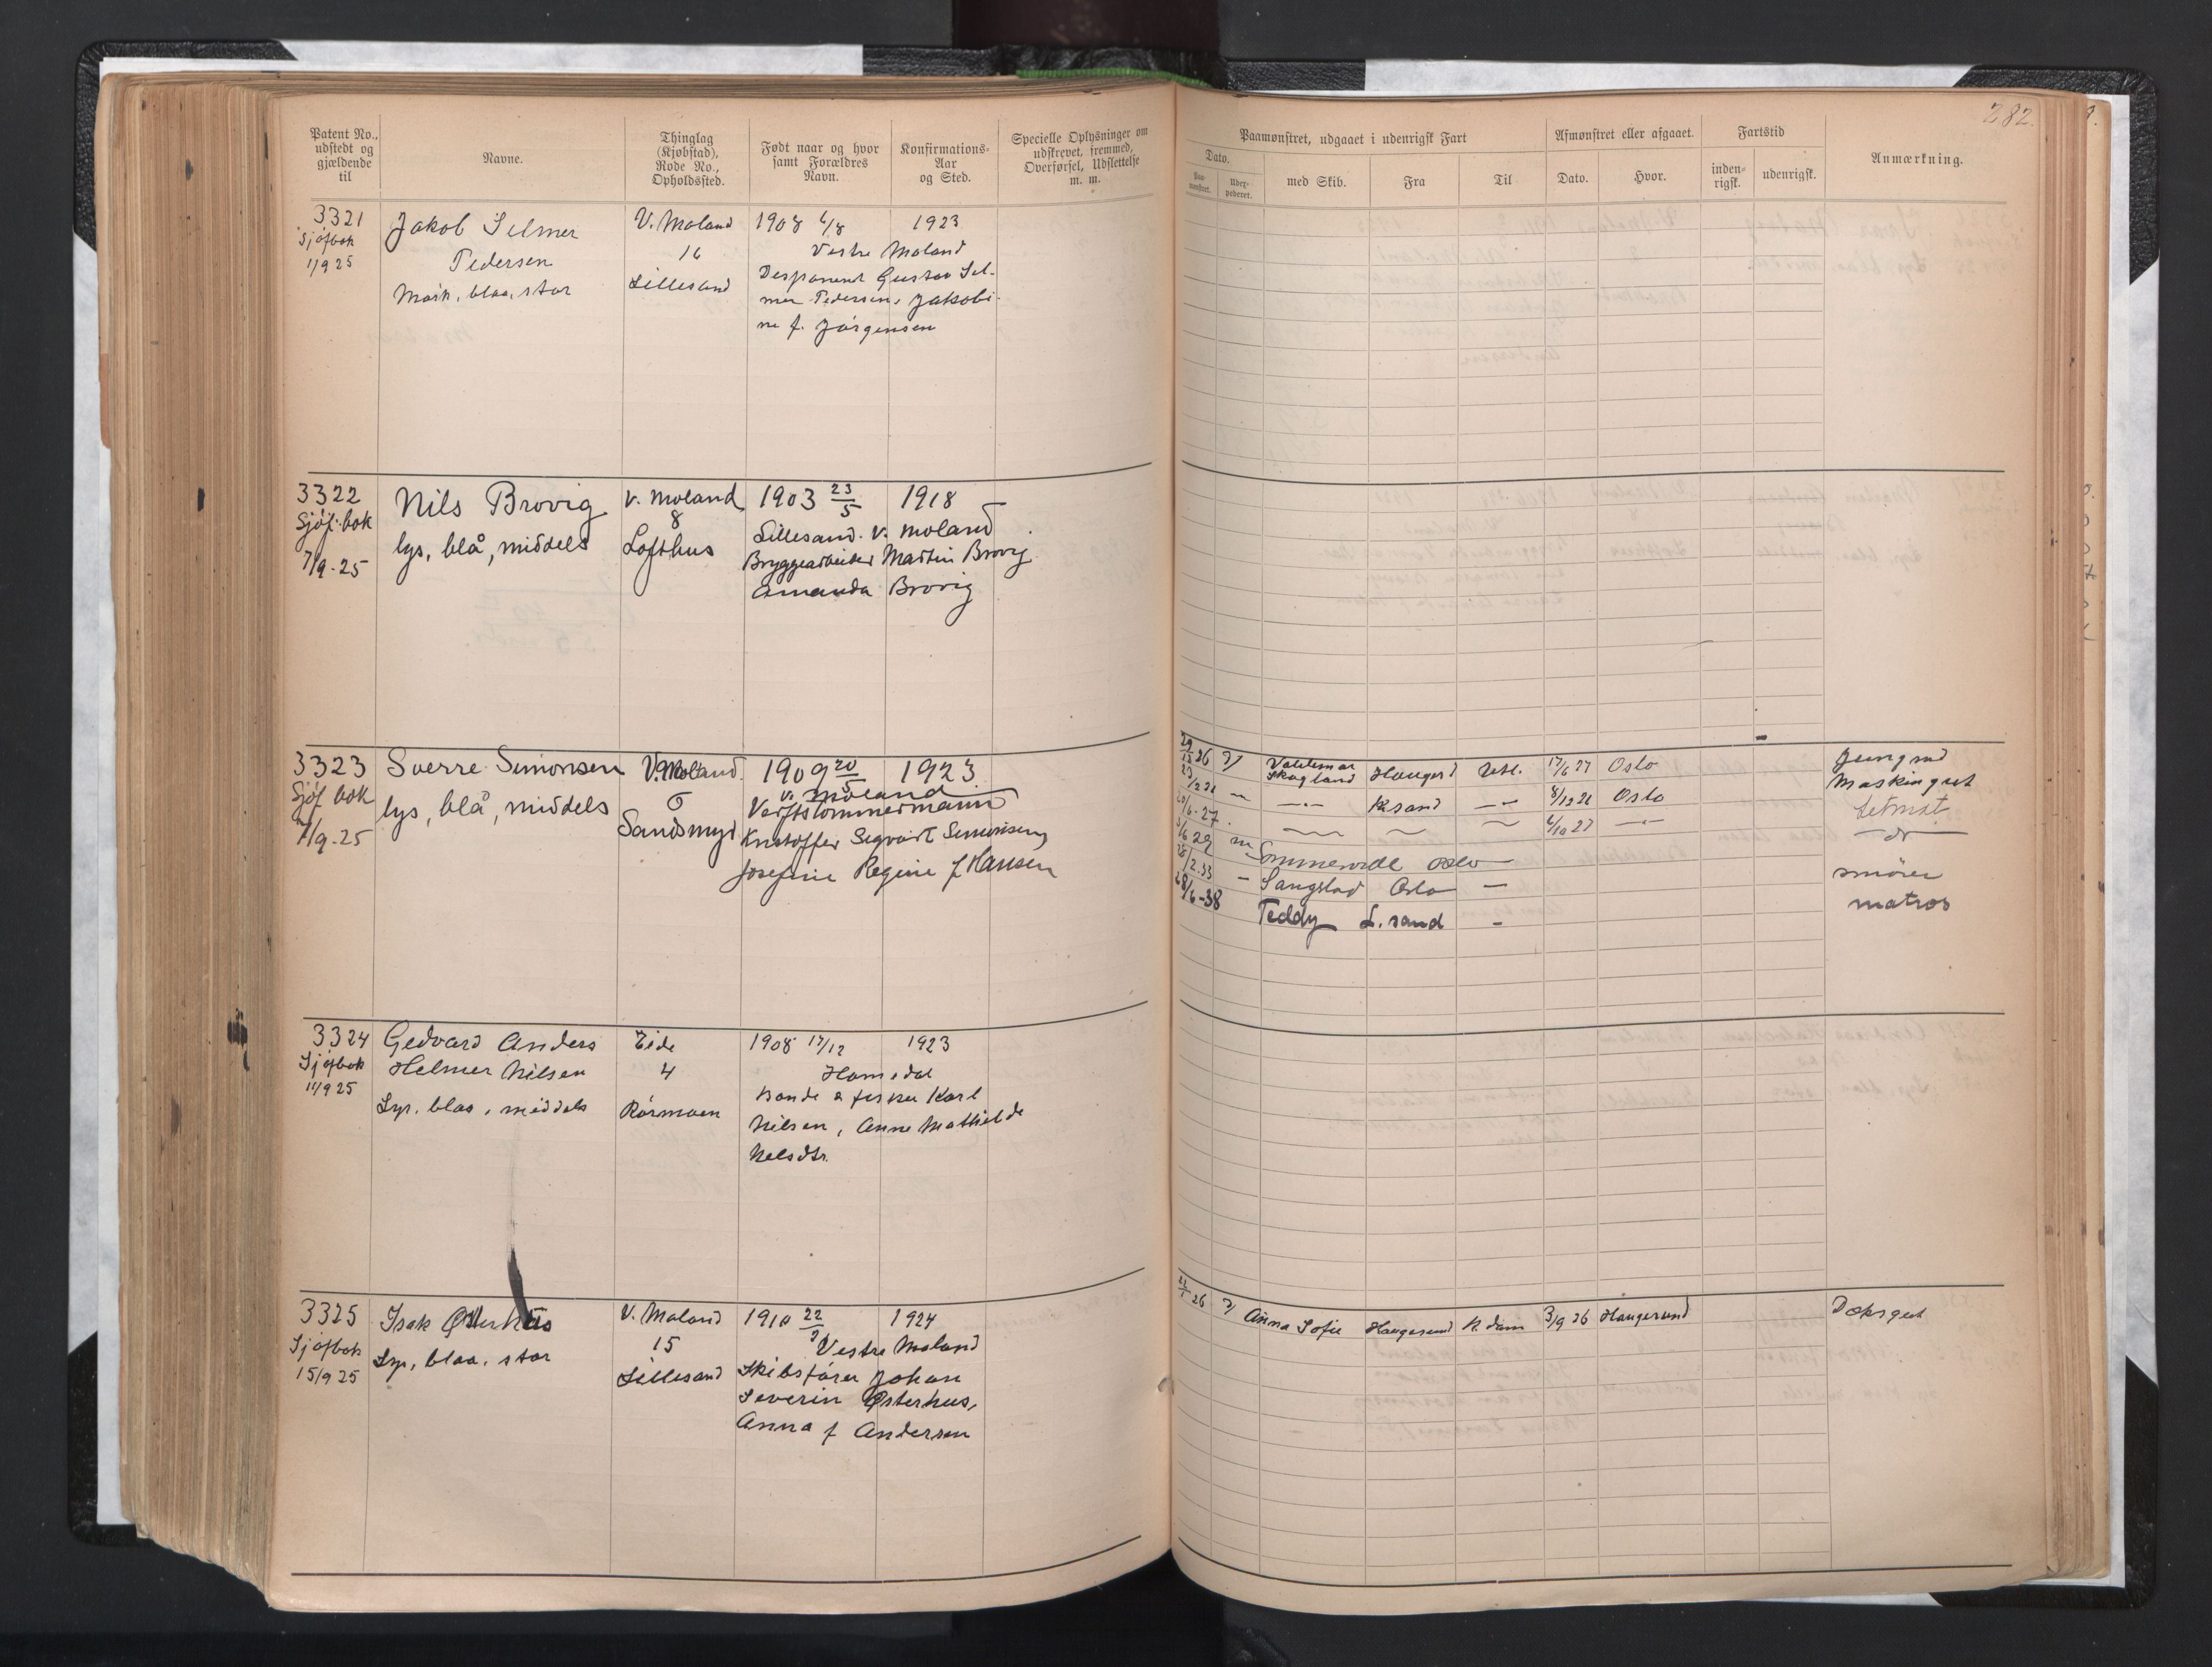 282.
Patent No., udstedt og gjældende til
Navne.
Thinglag (Kjøbstad), Rode No., Opholdssted.
Født naar og hvor samt Forældres Navn.
Konfirmations-Aar og Sted.
Specielle Oplysninger om udskrevet, fremmed, Overførsel, Udslettelse m. m.
Paamønstret, udgaaet i udenrigsk Fart
Dato.
Paa-mønstret.
med Skib.
Fra
Til
Afmønstret eller afgaaet.
Dato.
Hvor.
Fartstid
inden-rigsk.
udenrigsk.
Anmærkning.
3321
Sjøfbok
1/9 25
Jakob Selmer
Pedersen
Mørk, blaa, stor
V. Moland
16
Lillesand
1908 6/8 1923
Vestre Moland
Disponent Gustav Sel-
mer Pedersen, Jakobi-
ne f. Jørgensen
3322
Sjøf. bok
7/9-25
Nils Brovig
lys, blå, middels
V. Moland
8
Lofthus
1903 23/5 1918
Lillesand. V. Moland
Bryggearbeider Martin Brovig
Amanda Brovig
3323
Sjøf bok
7/9-25
Sverre Simonsen
lys, blå, middels
V. Moland
6
Sandsmyr
1909 20/5 1923
V. Moland
Verftstømmermann
Kristoffer Sigvart Simonsen,
Josefine Regine f Hansen
Valdemar Skogland Haugesd Utl. 17/6 27 Oslo Jungmd
K.sand 8/12 26 Oslo Maskingut
20/6-27 6/10 27 Letmat
Oslo do
2.33 Sangstad Oslo smører
28/6-38 Teddy L. sand - matros
3324
Sjøfbok
11/9 25
Gedvard Anders
Helmer Nilsen
Lys, blaa, middels
Eide
4
Rørmoen
1908 17/12 1923
Homedal
Bonde & fisker Karl
Nilsen, Anne Mathilde
Nelsdtr.
3325
Sjøfbok
15/9 25
Isak Østerhus
Lys, blaa, stor
V. Moland
15
Lillesand
1910 22 1924
Vestre Moland
Skibsfører Johan
Severin Østerhus,
Anna f Andersen
26 Anna Sofie Haugesund R.dam 3/9 26 Haugesund Dæksgut